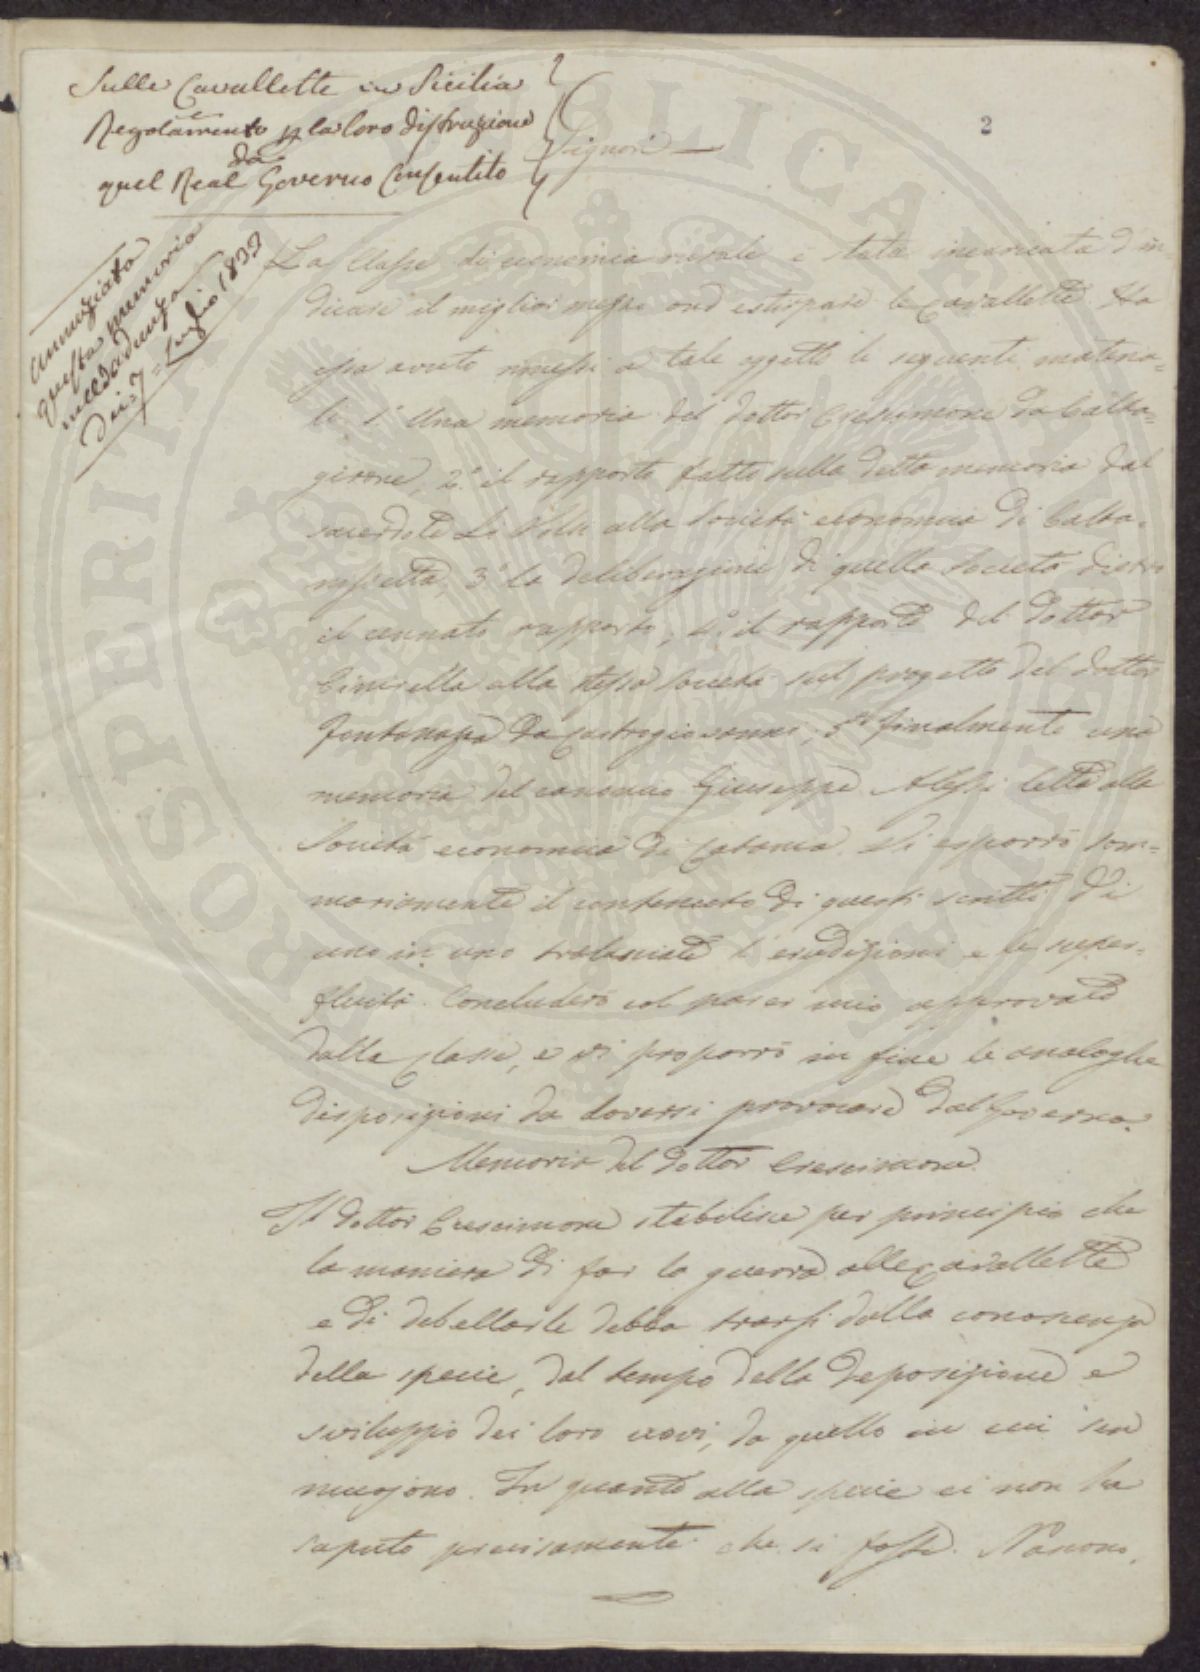 Sulle Cavallette in Sicilia
Regolamento p la loro distruzione
da
quel Real Governo Consentito
2
Signori —
Annunziata
questa memoria
nell'adunza
dei 7 Luglio 1833
La Classe di economia rurale è stata incaricata d'in=
dicare il miglior mezzo ond'estirpare le cavallette. Ha
essa avuto rimessi a tale oggetto le seguenti materia=
li 1.° Una memoria del dottor Crescimone da Calta=
girone, 2.° il rapporto fatto sulla detta memoria dal
sacerdote Li Volsi alla Società economica di Calta=
nissetta, 3.° la deliberazione di quella Società dietro
il cennato rapporto, 4.° il rapporto del dottor
alla stessa Società sul progetto del dottor
da Castrogiovanni, 5.° finalmente una
memoria del canonico Giuseppe Alessi letta alla
Società economica di Catania. Vi esporrò som=
mariamente il contenuto di questi scritti di
uno in uno tralasciate le erudizioni e le super=
fluità. Concluderò col parer mio approvato
dalla Classe, e vi proporrò in fine le analoghe
disposizioni da doversi provocare dal Governo.
Memoria del dottor Crescimone
Il dottor Crescimone stabilisce per principio che
la maniera di far la guerra alle cavallette
e di debellarle debba trarsi dalla conoscenza
della specie, dal tempo della deposizione e
sviluppo dei loro uovi, da quello in cui sen
muojono. In quanto alla specie ei non ha
saputo precisamente che si fosse.